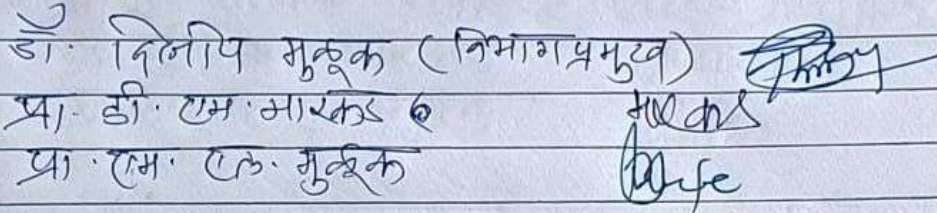 डॉ. दिलीप मुळूक (विभागप्रमुख)
प्रा. डी. एम. मारकड
प्रा. एम. एल. मुळूक